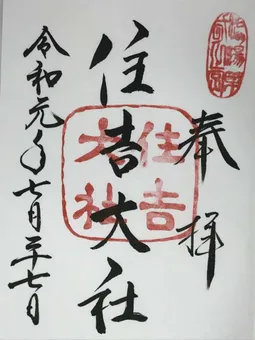 奉拝
住吉大社
住吉
大社
令和元年七月二十七日